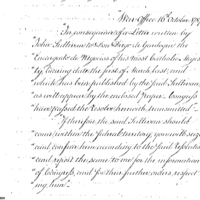 War Office 16 October 1787
In consequence of a Letter written by
John Sullivan to Don Diego de Gardoqui the
Encargado de Negocios of his most Catholic Majes
ty bearing date the first of March last, and
which has been published by the said Sullivan
as will appear by the enclosed Paper — Congress
have passed the Resolve herewith transmitted
If therefore the said Sullivan should
come within the federal territory, you will seize
and confine him according to the said Resolution
and report the same to me for the information
of Congress, and for their further orders respect
ing him